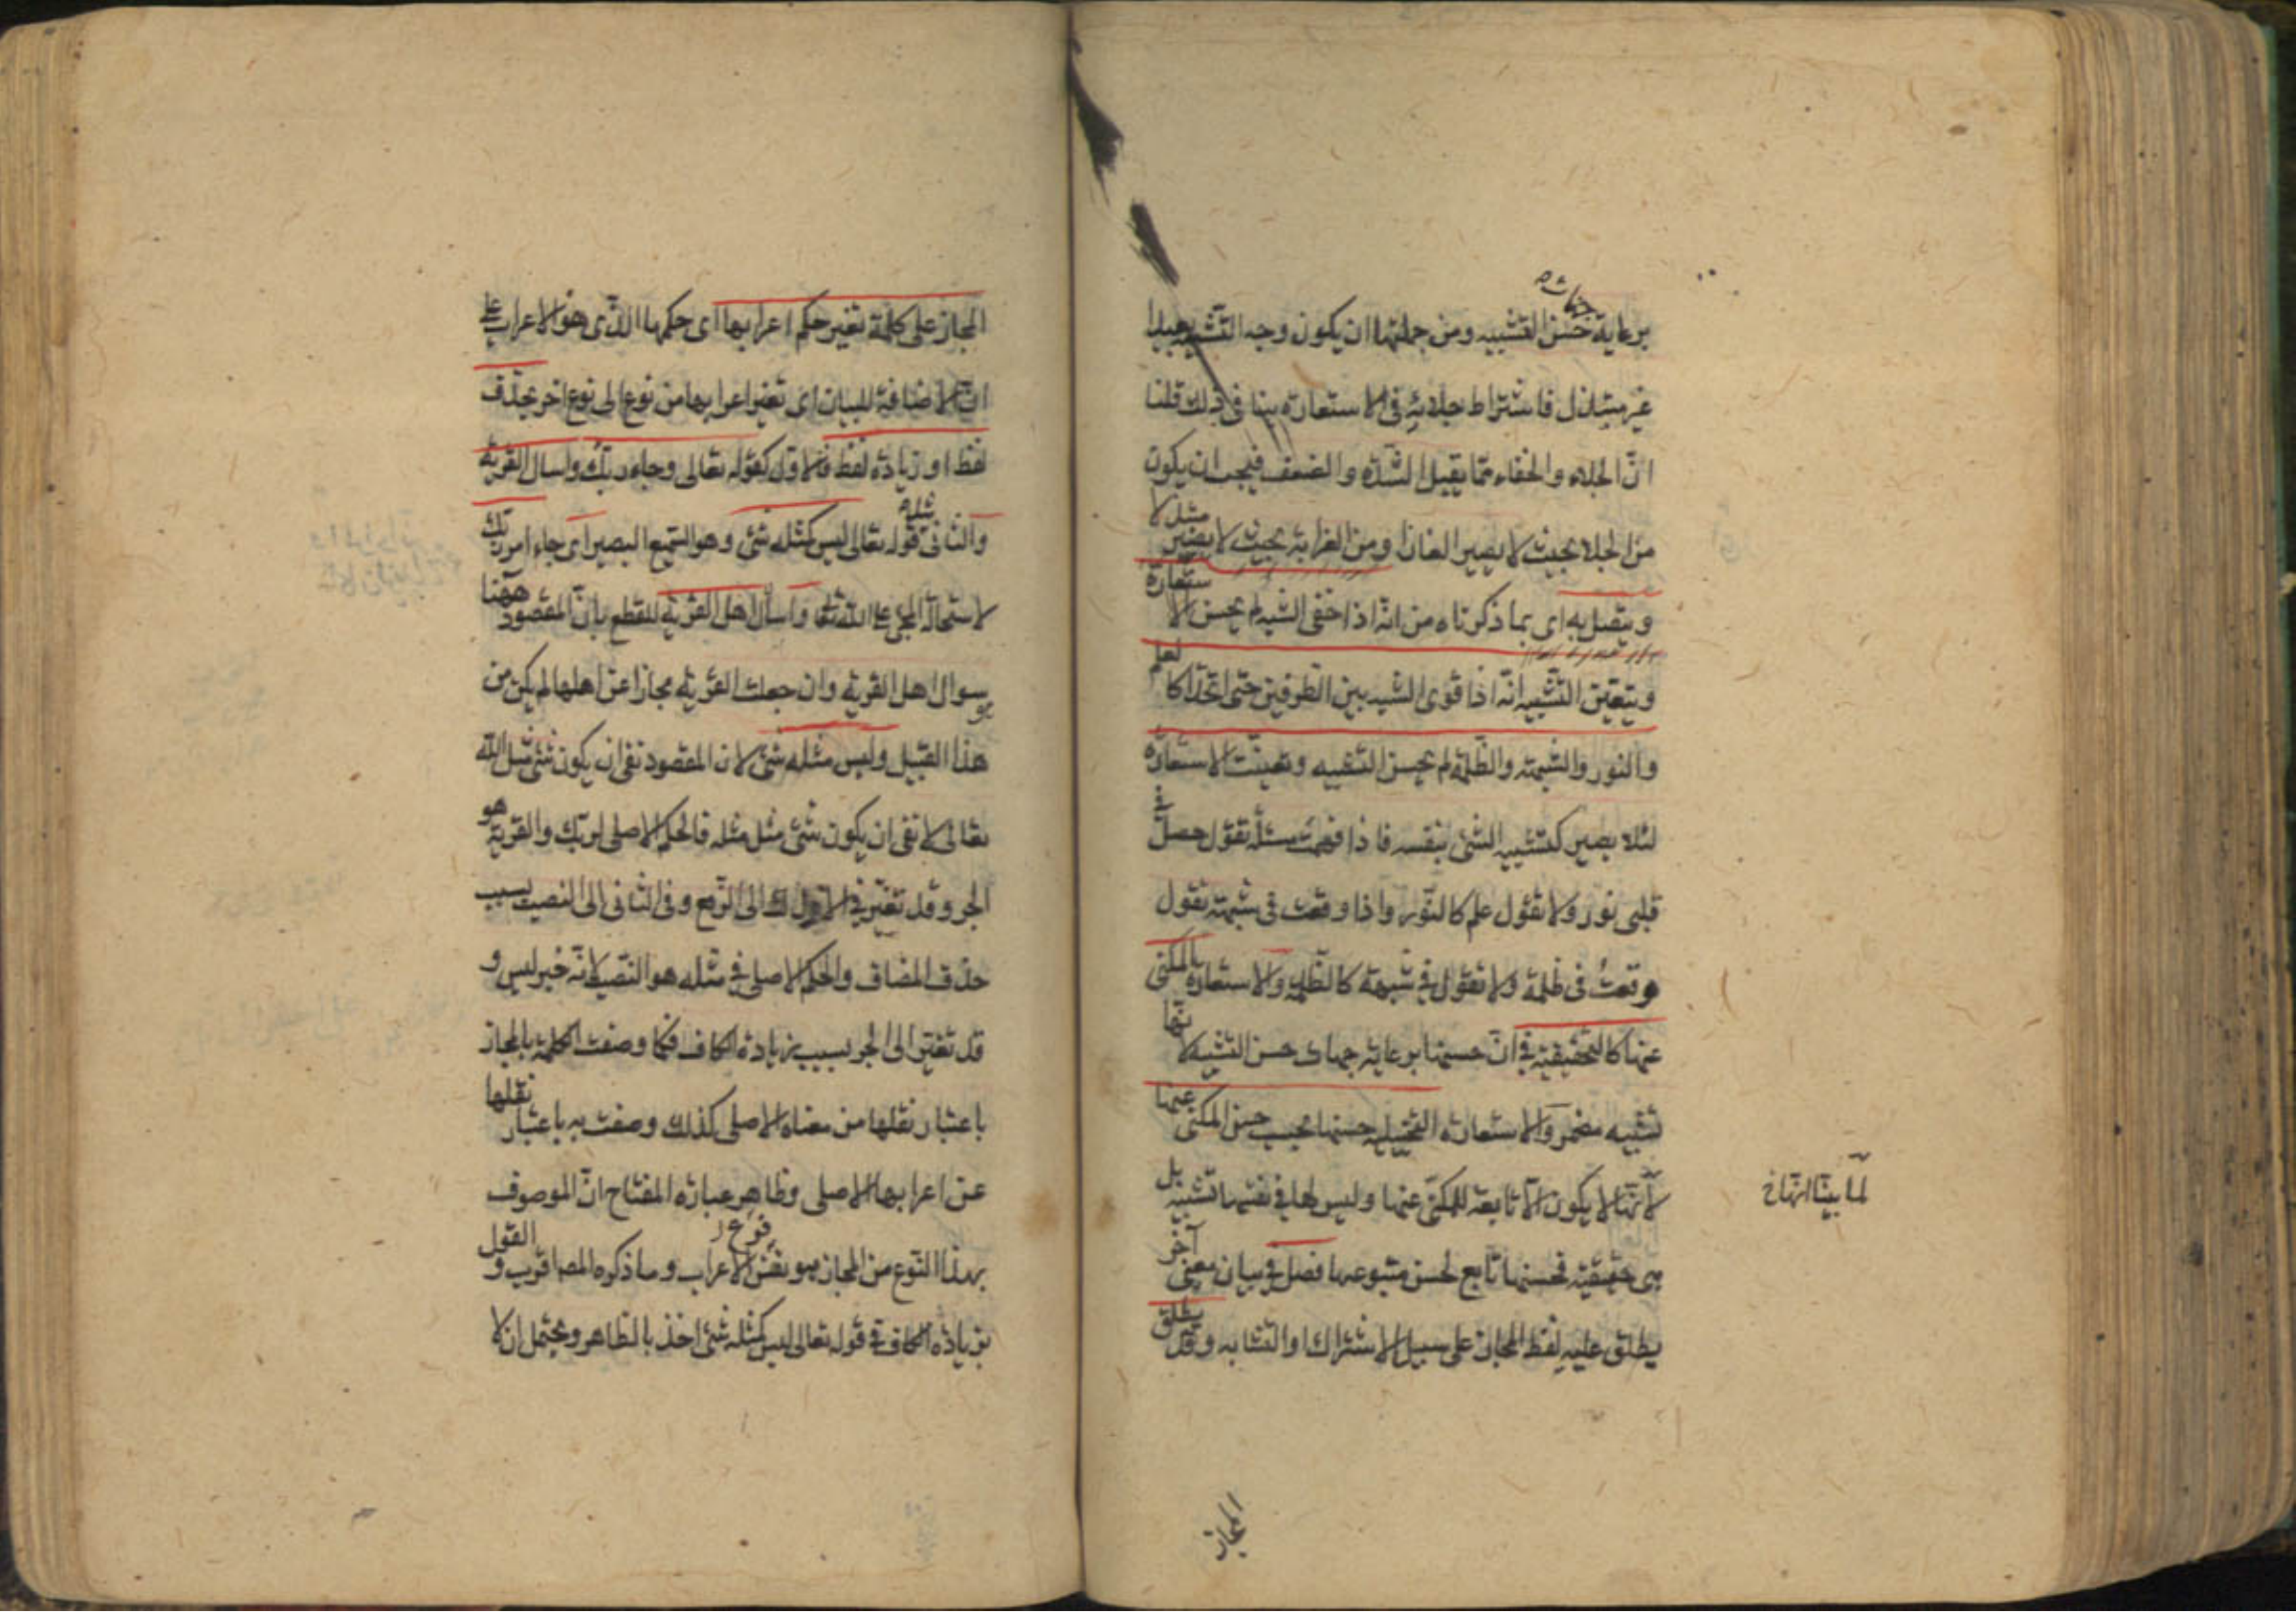 جهات
برعاية حسن التشبيه ومن جملتها ان يكون وجه التشبيه بعيدا
غير مبتذل فاشتراط جلائه في الاستعارة ينافي ذلك قلنا
انّ الجلاء والخفاء ممّا يقبل الشدّة والضعف فيجب ان يكون
من الجلاء بحيث لا يصير الغازا ومن الغرابة بحيث لا يصير مبتذلا
ويتصل به اى بما ذكرناه من انّه اذا خفى الشبه لم يحسن الاستعارة
ويتعيّن التشبيه انّه اذا قوى الشبه بين الطرفين حتى اتّحدا كالعلم
والنور والشبهة والظلمة لم يحسن التشبيه وتعيّنت الاستعارة
لئلا يصير كتشبيه الشئ بنفسه فاذا فهمت مسئلة تقول حصل في
قلبى نور ولا تقول علم كالنّور واذا وقعت في شبهة تقول
وقعت في ظلمة ولا تقول في شبهة كالظلمة والاستعارة بالمكنى
عنها كالتحقيقية في انّ حسنها برعاية جهات حسن التشبيه لانّها
تشبيه مضمر والاستعارة التخييلية حسنها بحسب حسن المكنى عنها
لأنّها لا يكون الّا تابعة للمكنّى عنها وليس لها في نفسها تشبيه بل
لما بيّنا انّها
هى حقيقية فحسنها تابع لحسن متبوعها فصل في بيان معنى آخر
يطلق عليه لفظ المجاز على سبيل الاشتراك او التشابه وقد يطلق
المجاز
المجاز على كلمة تغيّر حكم اعرابها اى حكمها الّذى هو الاعراب على
انّ الاضافة للبيان اى تغيّر اعرابها من نوع الى نوع اخر بحذف
لفظ او زيادة لفظ فالاوّل كقوله تعالى وجاء ربّك واسال القرية
والثانى مثل قوله تعالى ليس كمثله شئ وهو السّميع البصير اى جاء امر ربّك
لاستحالة المجئ على الله تعالى واسأل اهل القرية للقطع بانّ المقصود ههنا
سوال اهل القرية وان جعلت القرية مجازا عن اهلها لم يكن من
هذا القبيل وليس مثله شئ لان المقصود نفى ان يكون شئ مثل الله
تعالى لا نفى ان يكون شئ مثل مثله فالحكم الاصلى لربّك والقرية هو
الجر وقد تغيّر في الاول الى الرّفع وفى الثانى الى النصب بسبب
حذف المضاف والحكم الاصلى في مثله هو النّصب لانّه خبر ليس و
قد تغيّر الى الجر بسبب زيادة الكاف فكما وصفت الكلمة بالمجاز
باعتبار نقلها من معناه الاصلى كذلك وصفت به باعتبار نقلها
عن اعرابها الاصلى وظاهر عبارة المفتاح انّ الموصوف
بهذا النّوع من المجاز هو نفس الاعراب وما ذكره المص اقرب والقول
بزيادة الكاف في قوله تعالى ليس كمثله شئ اخذ بالظاهر ويحتمل ان لا